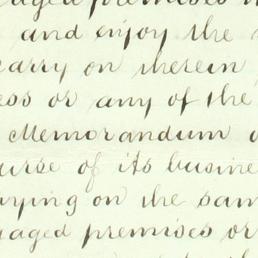 aged premises
and enjoy the
carry on therein
ess or any of the
Memorandum
urse of its busine
rying on the sam
gaged premises or